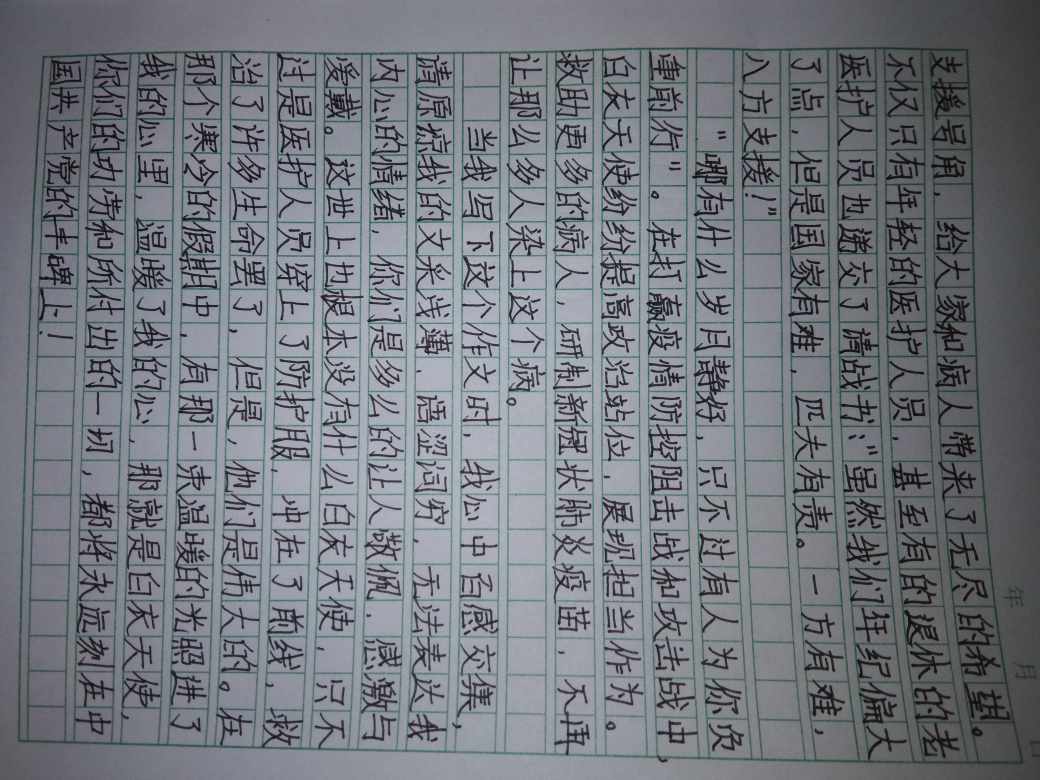 年 月 日
支援号角，给大家和病人带来了无尽的希望。
不仅只有年轻的医护人员，甚至有的退休的老
医护人员也递交了请战书："虽然我们年纪偏大
了点，但是国家有难，匹夫有责。一方有难，
八方支援！"
"哪有什么岁月静好，只不过有人为你负
重前行"。在打赢疫情防控阻击战和攻击战中，
白衣天使纷纷提高政治站位，展现担当作为。
救助更多的病人，研制新冠状肺炎疫苗，不再
让那么多人染上这个病。
当我写下这个作文时，我心中百感交集，
请原谅我的文采浅薄，语涩词穷，无法表达我
内心的情绪，你们是多么的让人敬佩，感激与
爱戴。这世上也根本没有什么白衣天使，只不
过是医护人员穿上了防护服，冲在了前线，救
治了许多生命罢了，但是，他们是伟大的。在
那个寒冷的假期中，有那一束温暖的光照进了
我的心里，温暖了我的心，那就是白衣天使，
你们的功劳和所付出的一切，都将永远刻在中
国共产党的丰碑上！